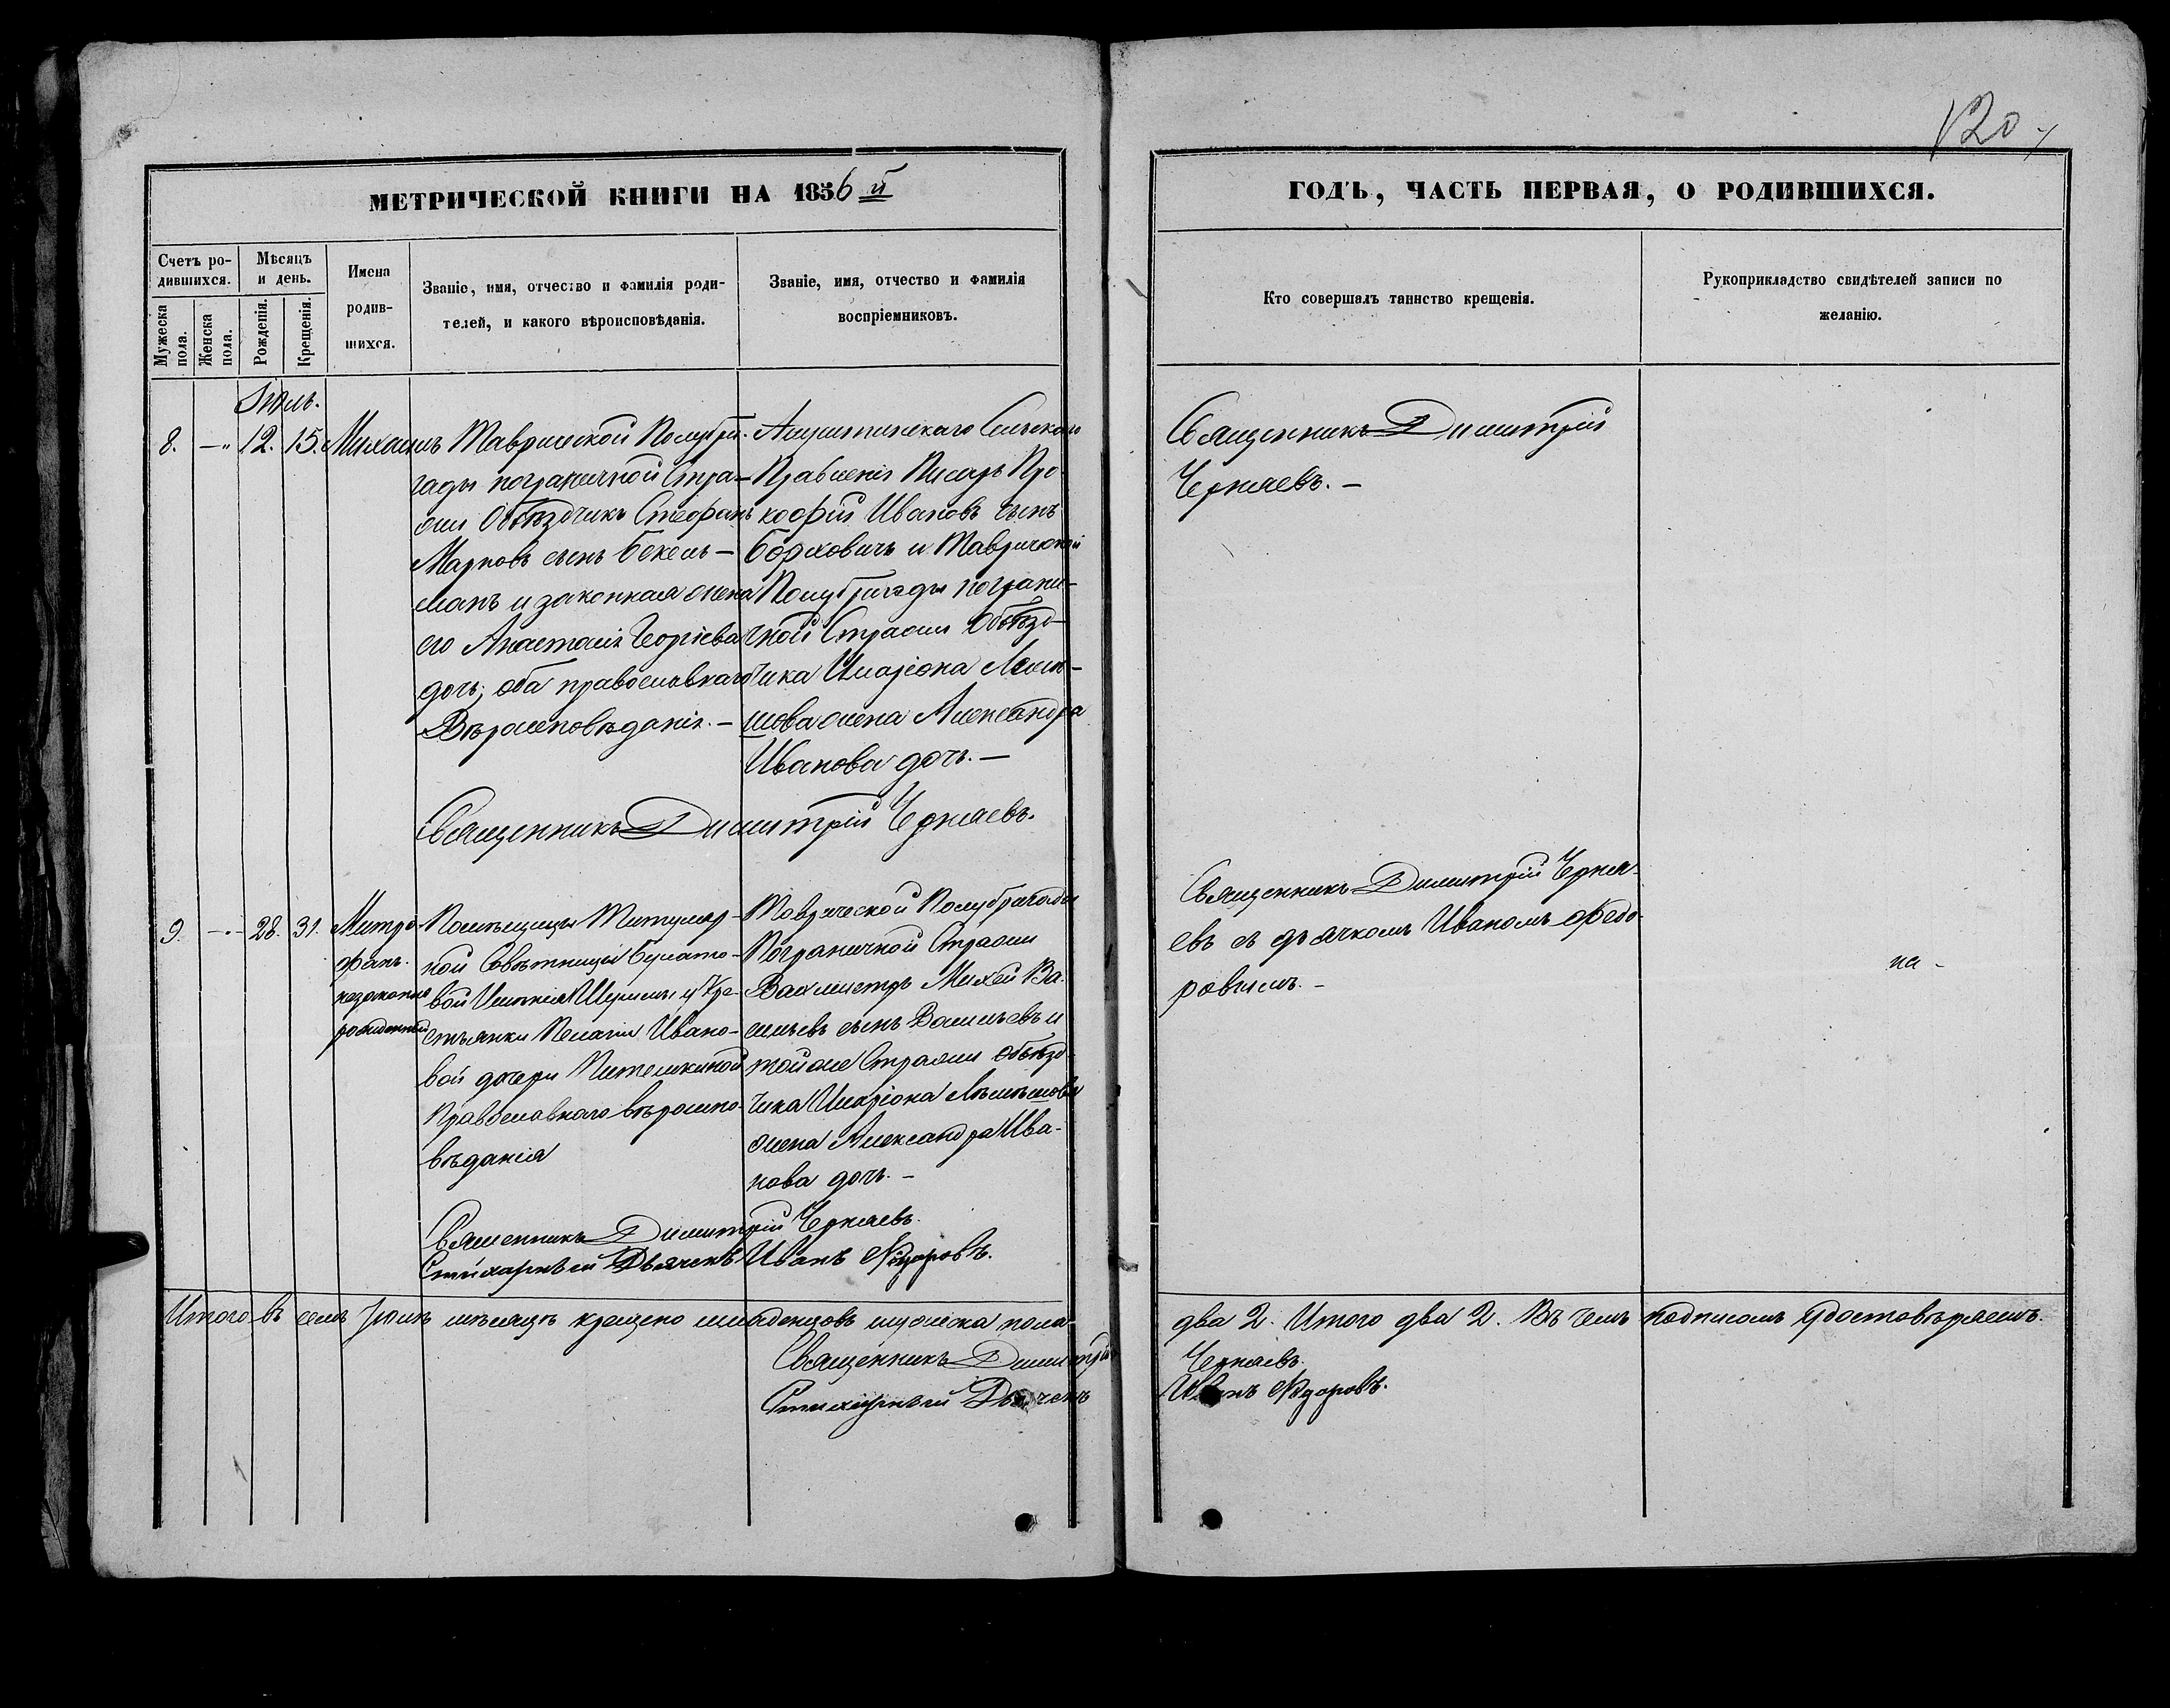 120
МЕТРИЧЕСКОЙ КНИГИ НА 1856й
ГОДЪ, ЧАСТЬ ПЕРВАЯ, О РОДИВШИХСЯ.
Счетъ ро-
дившихся.
Мужеска
пола.
Женска
пола.
Мѣсяцъ
и день.
Рожденія.
Крещенія.
Имена
родив-
шихся.
Званіе, имя, отчество и фамилія роди-
телей, и какого вѣроисповѣданія.
Званіе, имя, отчество и фамилія
воспріемниковъ.
Кто совершалъ таинство крещенія.
Рукоприкладство свидѣтелей записи по
желанію.
Іюль.
8. —" 12. 15. Михаилъ
Таврической Полубри-
гады пограничной Стра-
жи Объѣздчикъ Стефанъ
Марковъ сынъ Бекель-
манъ и законная жена
его Анастасія Георгіева
дочь; оба православнаго
Вѣроисповѣданія. —
Алуштинскаго Сельскаго
Правленія Писарь Про-
кофій Ивановъ сынъ
и Таврической
Полубригады пограни-
чной Стражи Объѣзд-
чика Иларіона Лемѣ-
шова жена Александра
Иванова дочь. —
Священникъ Димитрій Черняевъ.
Священникъ Димитрій
Черняевъ. —
9. —"— 28. 31. Митро-
фанъ.
незаконно
рожденный
Помѣщицы Титуляр-
ной Совѣтницы
вой Имѣнія Шумы Кре-
стьянки Пелагіи Ивано-
вой дочери
Православнаго вѣроиспо-
вѣданія
Таврической Полубригады
Пограничной Стражи
Вахмистръ Михей Ва-
сильевъ сынъ Васильевъ и
той же Стражи Объѣзд-
чика Иларіона Лѣмѣшова
жена Александра Ива-
нова дочь. —
Священникъ Димитрій Черняевъ.
Стихарный Дьячекъ Иванъ Ѳедоровъ.
Священникъ Димитрій Черня-
евъ съ дьячкомъ Иваномъ Федо-
ровымъ. —
Итого въ семъ Іюлѣ мѣсяцѣ крещено младенцовъ мужеска пола
два 2. Итого два 2. Въ чемъ подписомъ удостовѣряемъ.
Священникъ Димитрій
Черняевъ.
Стихарный Дьячекъ
Иванъ Ѳедоровъ.